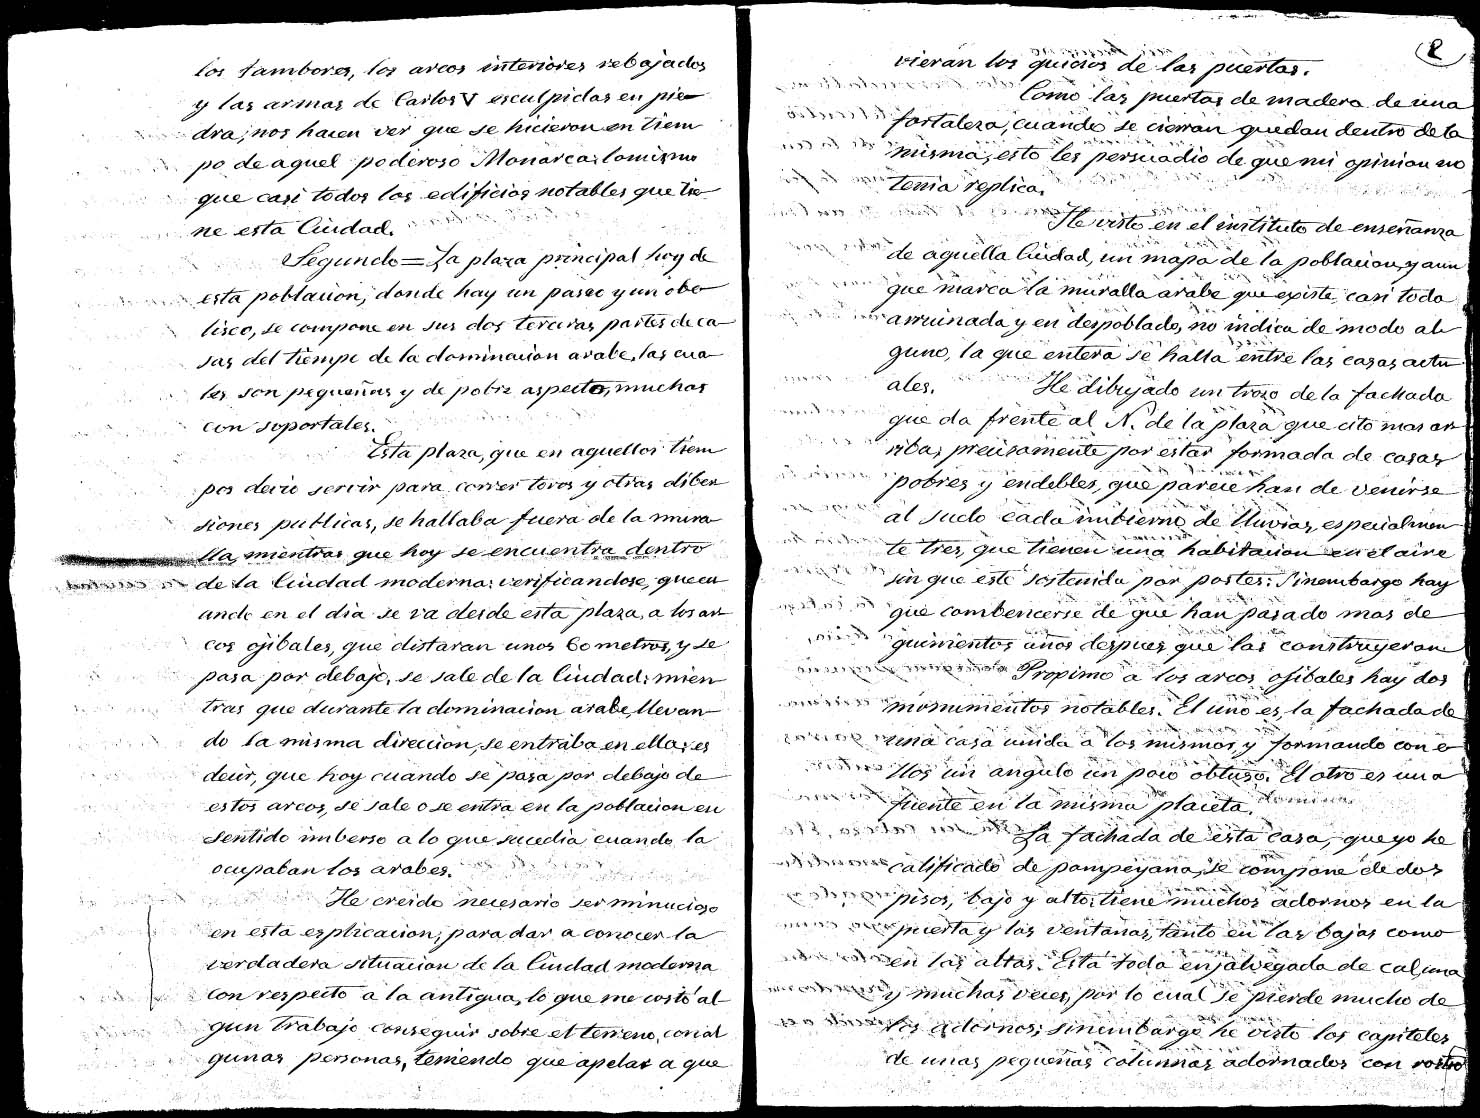 los tambores, los arcos interiores rebajados
y las armas de Carlos V esculpidas en pie-
dra; nos hacen ver que se hicieron en tiem
po de aquel poderoso Monarca: lo mismo
que casi todos los edificios notables que tie-
ne esta Ciudad.
Segundo = La plaza principal hoy de
esta poblacion, donde hay un paseo y un obe-
lisco, se compone en sus dos terceras partes de ca-
sas del tiempo de la dominacion arabe, las cua-
les son pequeñas y de pobre aspecto, muchas
con soportales.
Esta plaza, que en aquellos tiem
pos devió servir para correr toros y otras diber
siones publicas, se hallaba fuera de la mura
lla, mientras que hoy se encuentra dentro
de la Ciudad moderna: verificandose, que cu
ando en el dia se va desde esta plaza, a los ar-
cos ojibales, que distaran unos 60 metros, y se
pasa por debajo, se sale de la Ciudad: mien-
tras que durante la dominacion arabe, llevan-
do la misma direccion, se entraba en ella: es
decir, que hoy cuando se pasa por debajo de
estos arcos, se sale o se entra en la poblacion en
sentido imberso a lo que sucedia cuando la
ocupaban los arabes.
He creido necesario ser minucioso
en esta esplicacion, para dar a conocer la
verdadera situacion de la Ciudad moderna
con respecto a la antigua, lo que me costó al-
gun trabajo conseguir sobre el terreno, con al
gunas personas, teniendo que apelar a que
2
vieran los quicios de las puertas.
Como las puertas de madera de una
fortaleza, cuando se cierran quedan dentro de la
misma, esto les persuadio de que mi opinion no
tenia replica.
He visto en el instituto de enseñanza
de aquella Ciudad, un mapa de la poblacion, y aun
que marca la muralla arabe que existe, casi toda
arruinada y en despoblado, no indica de modo al-
guno, la que entera se halla entre las casas actu-
ales. He dibujado un trozo de la fachada
que da frente al N. de la plaza que cito mas ar-
riba, precisamente por estar formada de casas
pobres y endebles, que parece han de venirse
al suelo cada imbierno de lluvias, especialmen-
te tres, que tienen una habitacion en el aire
sin que esté sostenida por postes: sinembargo hay
que combencerse de que han pasado mas de
quinientos años despues que las construyeron
Proximo a los arcos ojibales hay dos
monumentos notables. El uno es, la fachada de
una casa unida a los mismos, y formando con e-
llos un angulo un poco obtuso. El otro es una
fuente en la misma placeta.
La fachada de esta casa, que yo he
calificado de pompeyana, se compone de dos
pisos, bajo y alto: tiene muchos adornos en la
puerta y las ventanas, tanto en las bajas como
en las altas. Esta toda enjalvegada de cal, una
y muchas veces, por lo cual se pierde mucho de
los adornos; sinembargo he visto los capiteles
de unas pequeñas columnas adornados con rostro